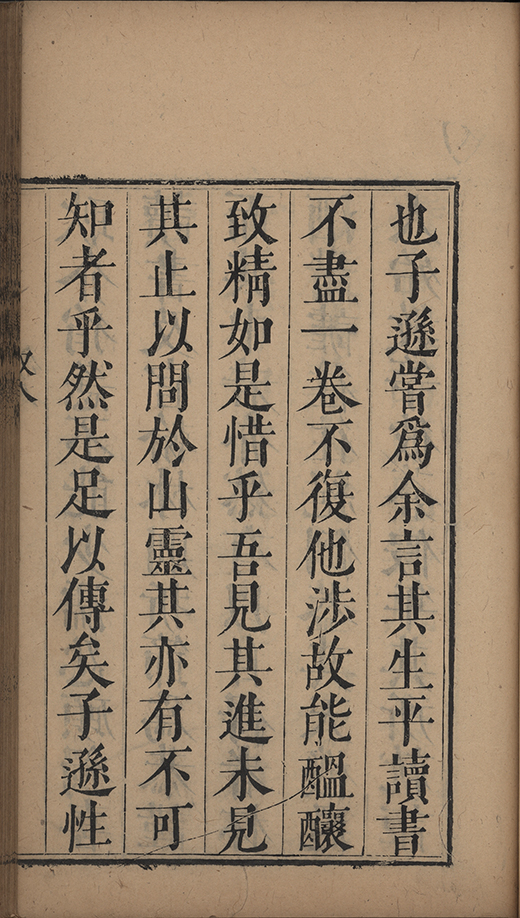 也子遜嘗爲余言其生平讀書
不盡一卷不復他涉故能醞釀
致精如是惜乎吾見其進未見
其止以問於山靈其亦有不可
知者乎然是足以傳矣子遜性